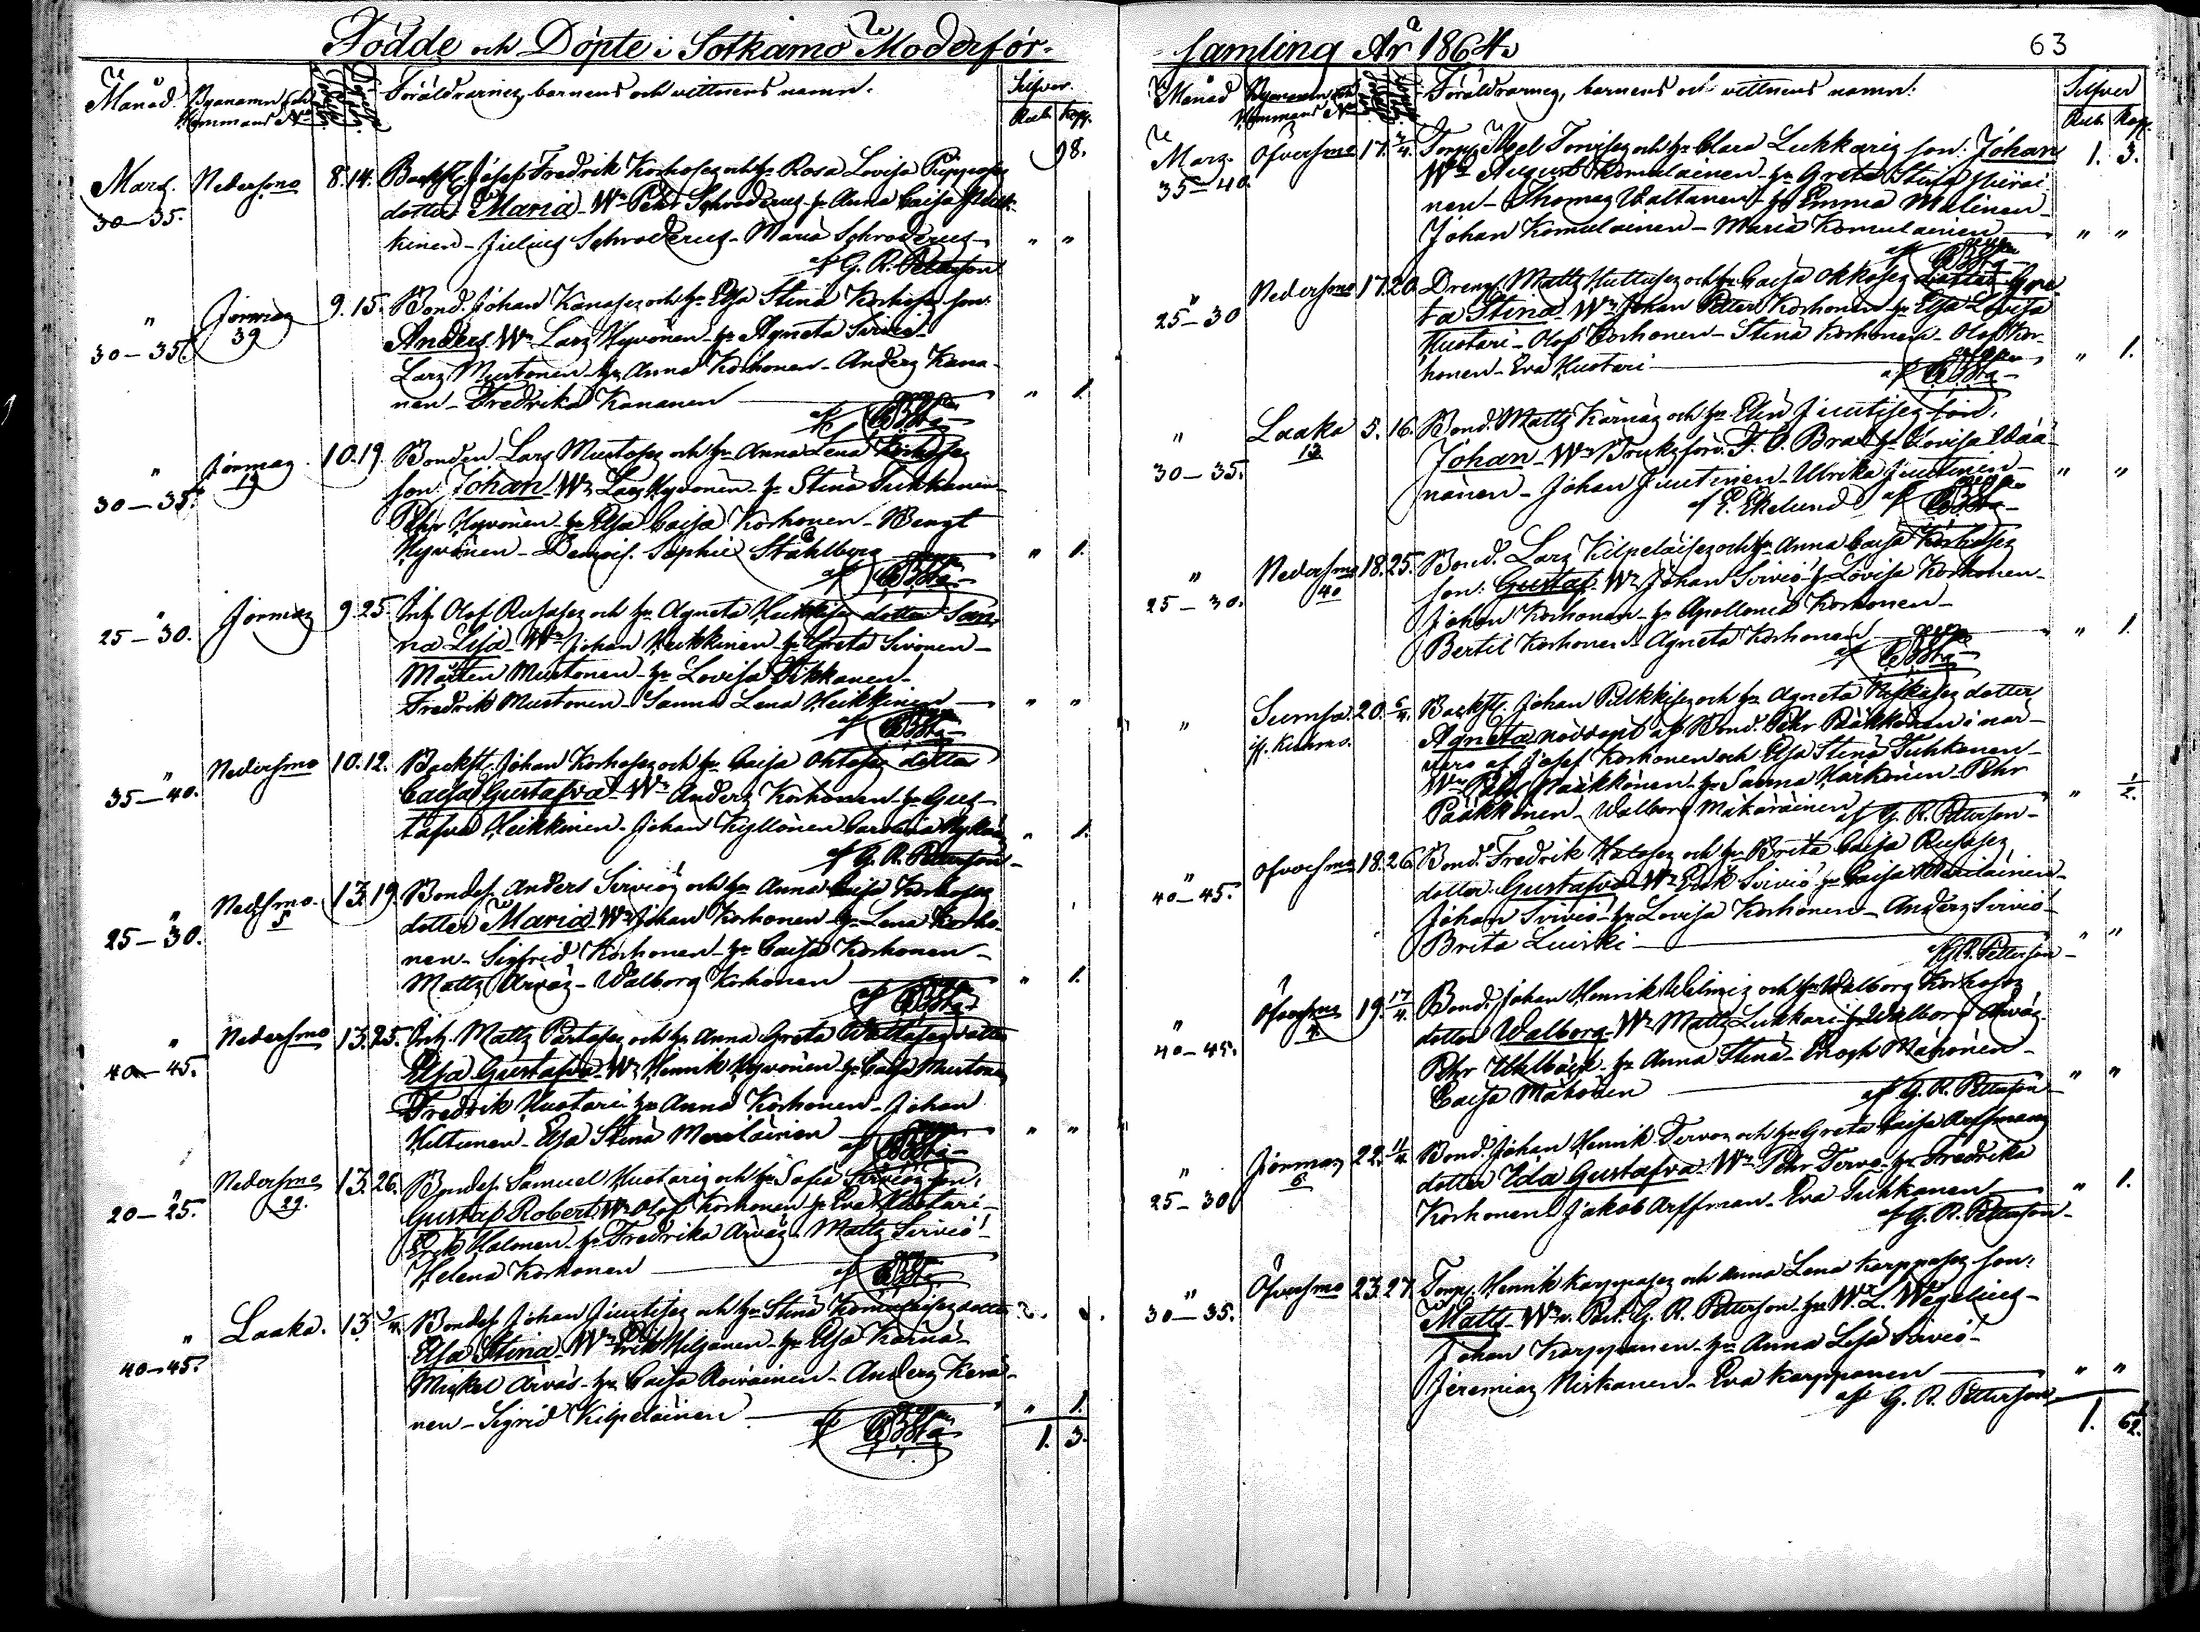 Födde och Döpte i Sotkamo Moderför-
Månad. Bynamn och Hemmans No
Föräldrarnes, barnens och vittnens namn.
Silfver.
Rub. Kop.
98.
Mars. Nedersmo 8. 14. Backst. Josef Fredrik Korhosez och h. Rosa Lovisa Piipposez
30—35. dotter Maria. Wn Pehr Schroderus - h. Anna Caisa
kinen - Julius Schroderus - Maria Schroderus — " "
af G. R. Petterson
" Jormas 9. 15. Bond. Johan Kanasez och h. Elsa Stina Korhosez son:
30—35. 39 Anders. Wn Lars Hyvönen - h. Agneta Sirviö -
Lars Mustonen - h. Anna Korhonen - Anders Kana-
nen - Fredrika Kananen — " 1.
" Jormas 10. 19. Bonden Lars Mustosez och h. Anna Lena Korhosez
30—35. 19 son: Johan. Wn Lars Hyvönen - h. Stina Tuhkanen
Pehr Hyvönen - h. Elsa Caisa Korhonen - Bengt
Hyvönen - Demois. Sophie Ståhlberg — " 1.
" Jormas 9. 25. Inh. Olof Rusasez och h. Agneta Heikkisez dotter San-
25—30. na Lisa. Wn Johan Heikkinen - h. Greta Sivonen -
Mårten Mustonen - h. Lovisa Tikkanen -
Fredrik Mustonen - Sanna Lena Heikkinen — " "
" Nedersmo 10. 12. Backst. Johan Korhosez och h. Caisa dotter
35—40. Caisa Gustafva. Wn Anders Korhonen - h. Gus-
tafva Heikkinen - Johan Kyllönen Carolina " 1.
af G. R. Petterson
" Nedsmo. 13. 19. Bondes. Anders Sirviöz och h. Anna Caisa Korhosez
25—30. 5 dotter Maria. Wn Johan Korhonen - h. Lena Korho-
nen - Sigfrid Korhonen - h. Caisa Korhonen -
Matts Arväs - Walborg Korhonen — " 1.
" Nedersmo 13. 25. Inh. Matts Partasez och h. Anna Greta Wattasez dotter
40—45. Elsa Gustafva. Wn Henrik Hyvönen - h. Caisa Mustonen
Fredrik Huotari - h. Anna Korhonen - Johan
Kiltunen - Elsa Stina Meriläinen — " "
" Nedersmo 13. 26. Bondes. Samuel Huotariz och h. Sofia Sirviöz son:
20—25. 29. Gustaf Robert. Wn Olof Korhonen - h. Eva Huotari -
Erik Halonen - h. Fredrika Arväs - Matts Sirviö -
Helena Korhonen —
" Laaka. 13. 3/4. Bondes. Johan Juutisez och h. Stina Komulaisez dotter
40—45. Elsa Stina. Wn Erik Heljanen - h. Elsa Kärnä -
Mickel Arväs - h. Caisa Roivainen - Anders Kerä-
nen - Sigrid Kilpeläinen — " 1.
1. 3.
samling År 1864.
63
Månad Bynamn och Hemmans No
Föräldrarnes, barnens och vittnens namn.
Silfver
Rub. Kop.
Mars. Öfversmo 17. 3/4. Torp. Axel Torvisez och h. Clara Lukkariz son: Johan 1. 3.
35—40. Wn August Komulainen - h. Greta Stina
nen - Thomas Waltanen - h. Emma Malinen -
Johan Komulainen - Maria Komulainen — " "
" Nedersmo 17. 20. Dreng. Matts Huttusez och h. Caisa Okkosez dotter Gre-
25—30 ta Stina. Wn Johan Petter Korhonen - h. Elsa Lovisa
Huotari - Olof Korhonen - Stina Korhonen - Olof Kor-
honen - Eva Huotari — " 1.
" Laaka 5. 16. Bond. Matts Kärnäz och h. Elin Juutisez son:
30—35. 13 Johan. Wn Bruksförv. F. O. Brax - h. Lovisa Wää-
nänen - Johan Juutinen - Ulrika Juutinen — " "
af E. Ekelund
" Nedersmo 18. 25. Bond. Lars Kilpeläisez och h. Anna Caisa Korhosez
25—30. 40 son: Gustaf. Wn Johan Sirviö - h. Lovisa Korhonen -
Johan Korhonen - h. Apollonia Korhonen -
Bertil Korhonen - Agneta Korhonen — " 1.
" Sumsa. 20. 6/4. Backst. Johan Pulkkisez och h. Agneta dotter
if. Kuhmo. Agneta nöddöpt af Bond. Pehr Pääkkönen i när-
varo af Josef Korhonen och Elsa Stina Tuhkanen -
Wn Pehr Pääkkönen - h. Sanna Härkönen - Pehr
Pääkkönen - Walborg Mäkäräinen " 1/2.
af G. R. Petterson -
" Öfversmo 18. 26. Bond. Fredrik Halosez och h. Brita Caisa Rusasez
40—45. dotter: Gustafva. Wn Erik Sirviö - h. Caisa Meriläinen -
Johan Sirviö - h. Lovisa Korhonen - Anders Sirviö -
Brita Luirki — " "
G. R. Petterson -
" Öfversmo 19. 17/4. Bond. Johan Henrik Wilmiz och h. Walborg Korhosez
40—45. 4 dotter Walborg. Wn Matts Lukkari - h. Walborg Arväs -
Pehr Uhlbäck - h. Anna Stina - Enogh Mähönen -
Caisa Mähönen — " "
af G. R. Petterson -
" Jormas 22. 11/4. Bond. Johan Henrik Tervoz och h. Greta Caisa Arffmanz
25—30 6 dotter Ida Gustafva. Wn Pehr Tervo - h. Fredrika
Korhonen - Jakob Arffman - Eva Tuhkanen — " 1.
af G. R. Petterson -
" Öfversmo 23. 27. Torp. Henrik Karpposez och Anna Lena Karpposez son:
30—35. Matts. Wn v. Past. G. R. Petterson - h. W. L. Wegelius -
Johan Karppanen - h. Anna Lisa Sirviö -
Jeremias Niskanen - Eva Karppanen — " "
af G. R. Petterson
1. 6 1/2.